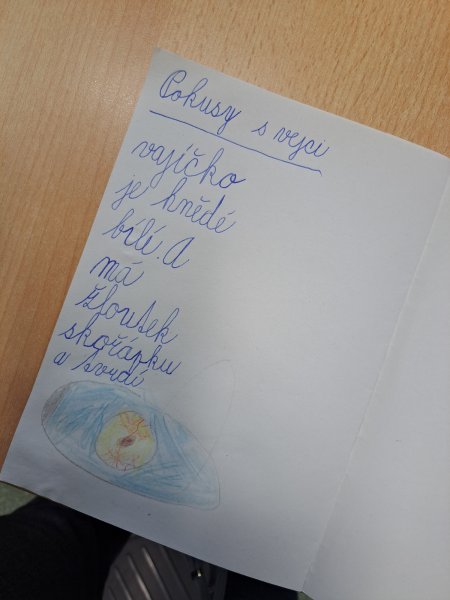 Pokusy s vejci
vajíčko
je hnědé
bílí. A
má
žloutek
skořápku
a tvrdí